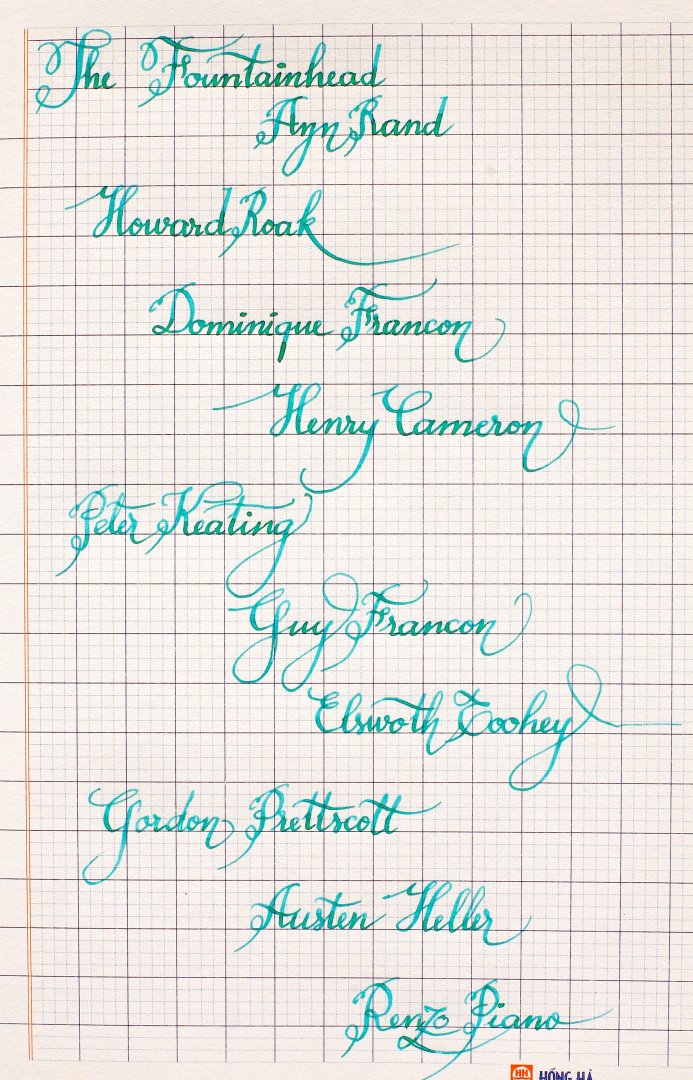 The Fountainhead
Ayn Rand
Howard Roak
Dominique Francon
Henry Cameron
Peter Keating
Guy Francon
Elswoth Toohey
Gordon Prettscott
Austen Heller
Renzo Piano
HH HỒNG HÀ